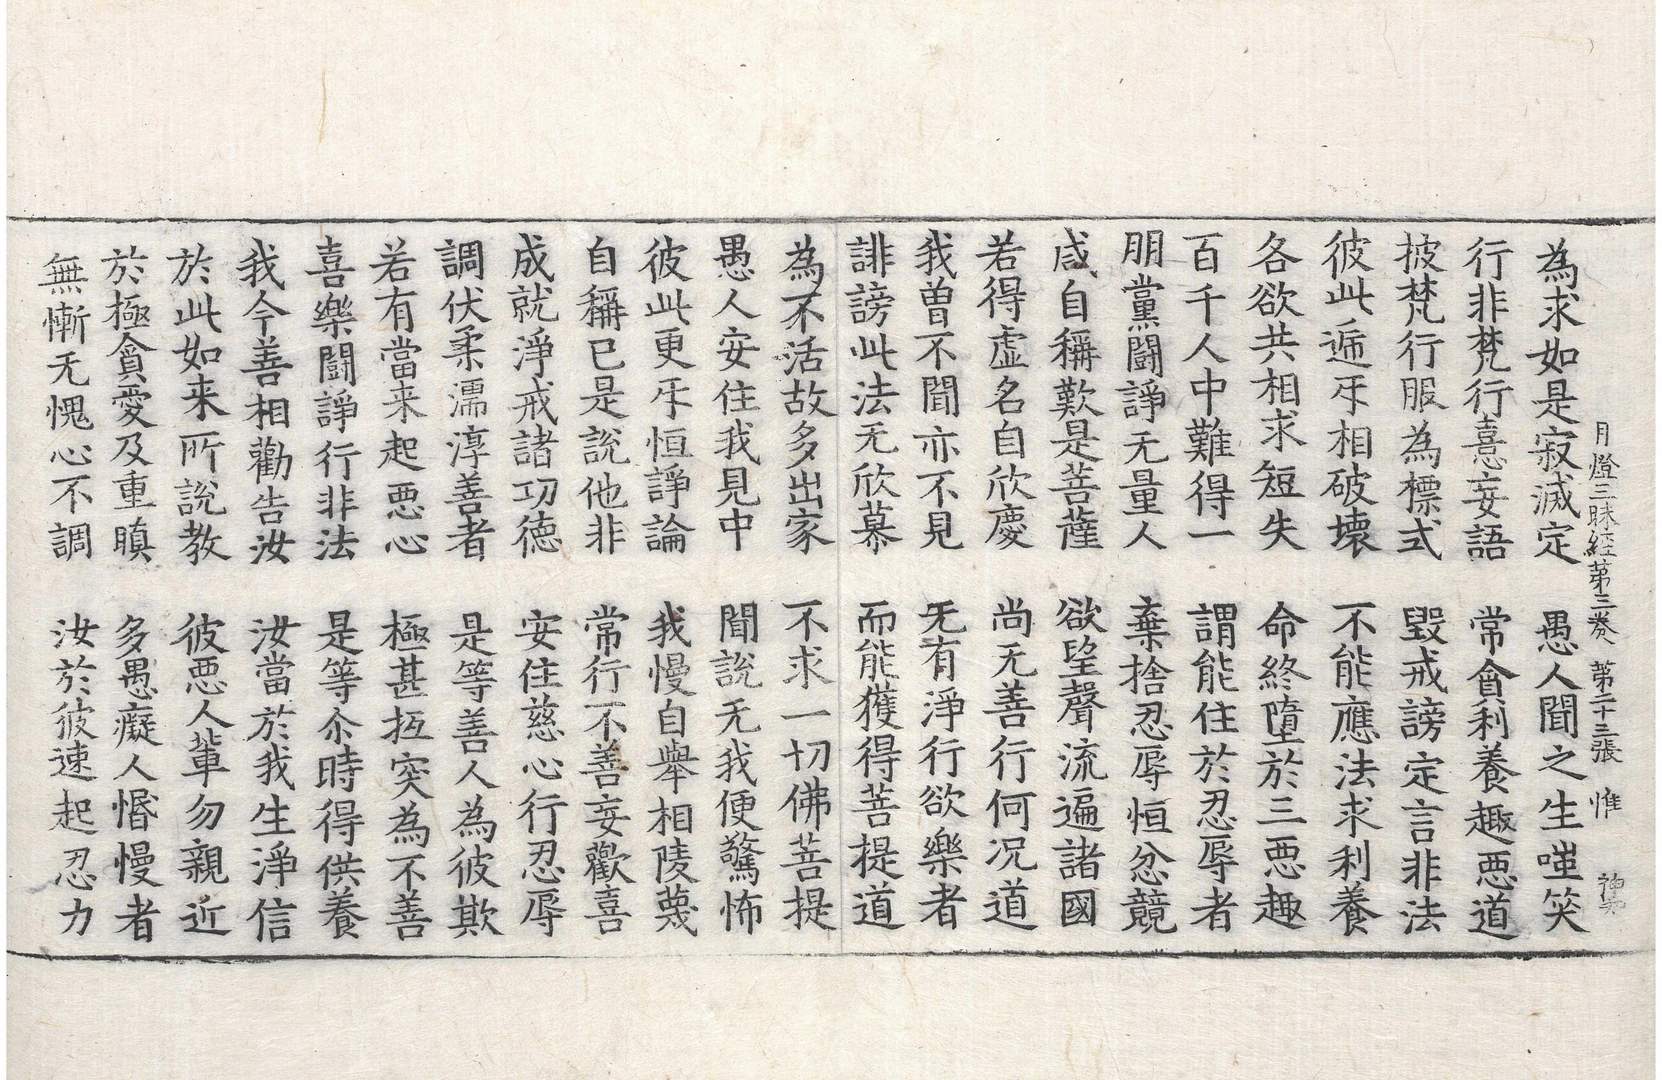 月燈三昧經第三卷 第二十三張 惟
為求如是寂滅定 愚人聞之生嗤笑
行非梵行憙妄語 常貪利養趣惡道
披梵行服為標式 毀戒謗定言非法
彼此遞牙相破壞 不能應法求利養
各欲共相求短失 命終墮於三惡趣
百千人中難得一 謂能住於忍辱者
朋黨鬪諍无量人 棄捨忍辱恒忿競
咸自稱歎是菩薩 欲望聲流遍諸國
若得虛名自欣慶 尚无善行何況道
我曾不聞亦不見 无有淨行欲樂者
誹謗此法无欣慕 而能獲得菩提道
為不活故多出家 不求一切佛菩提
愚人安住我見中 聞說无我便驚怖
彼此更牙恒諍論 我慢自舉相陵蔑
自稱已是說他非 常行不善妄歡喜
成就淨戒諸功德 安住慈心行忍辱
調伏柔濡淳善者 是等善人為彼欺
若有當来起惡心 極甚抂突為不善
喜樂鬪諍行非法 是等尒時得供養
我今善相勸告汝 汝當於我生淨信
於此如来所說教 彼惡人輩勿親近
於極貪愛及重瞋 多愚癡人惛慢者
無慚无愧心不調 汝於彼速起忍力